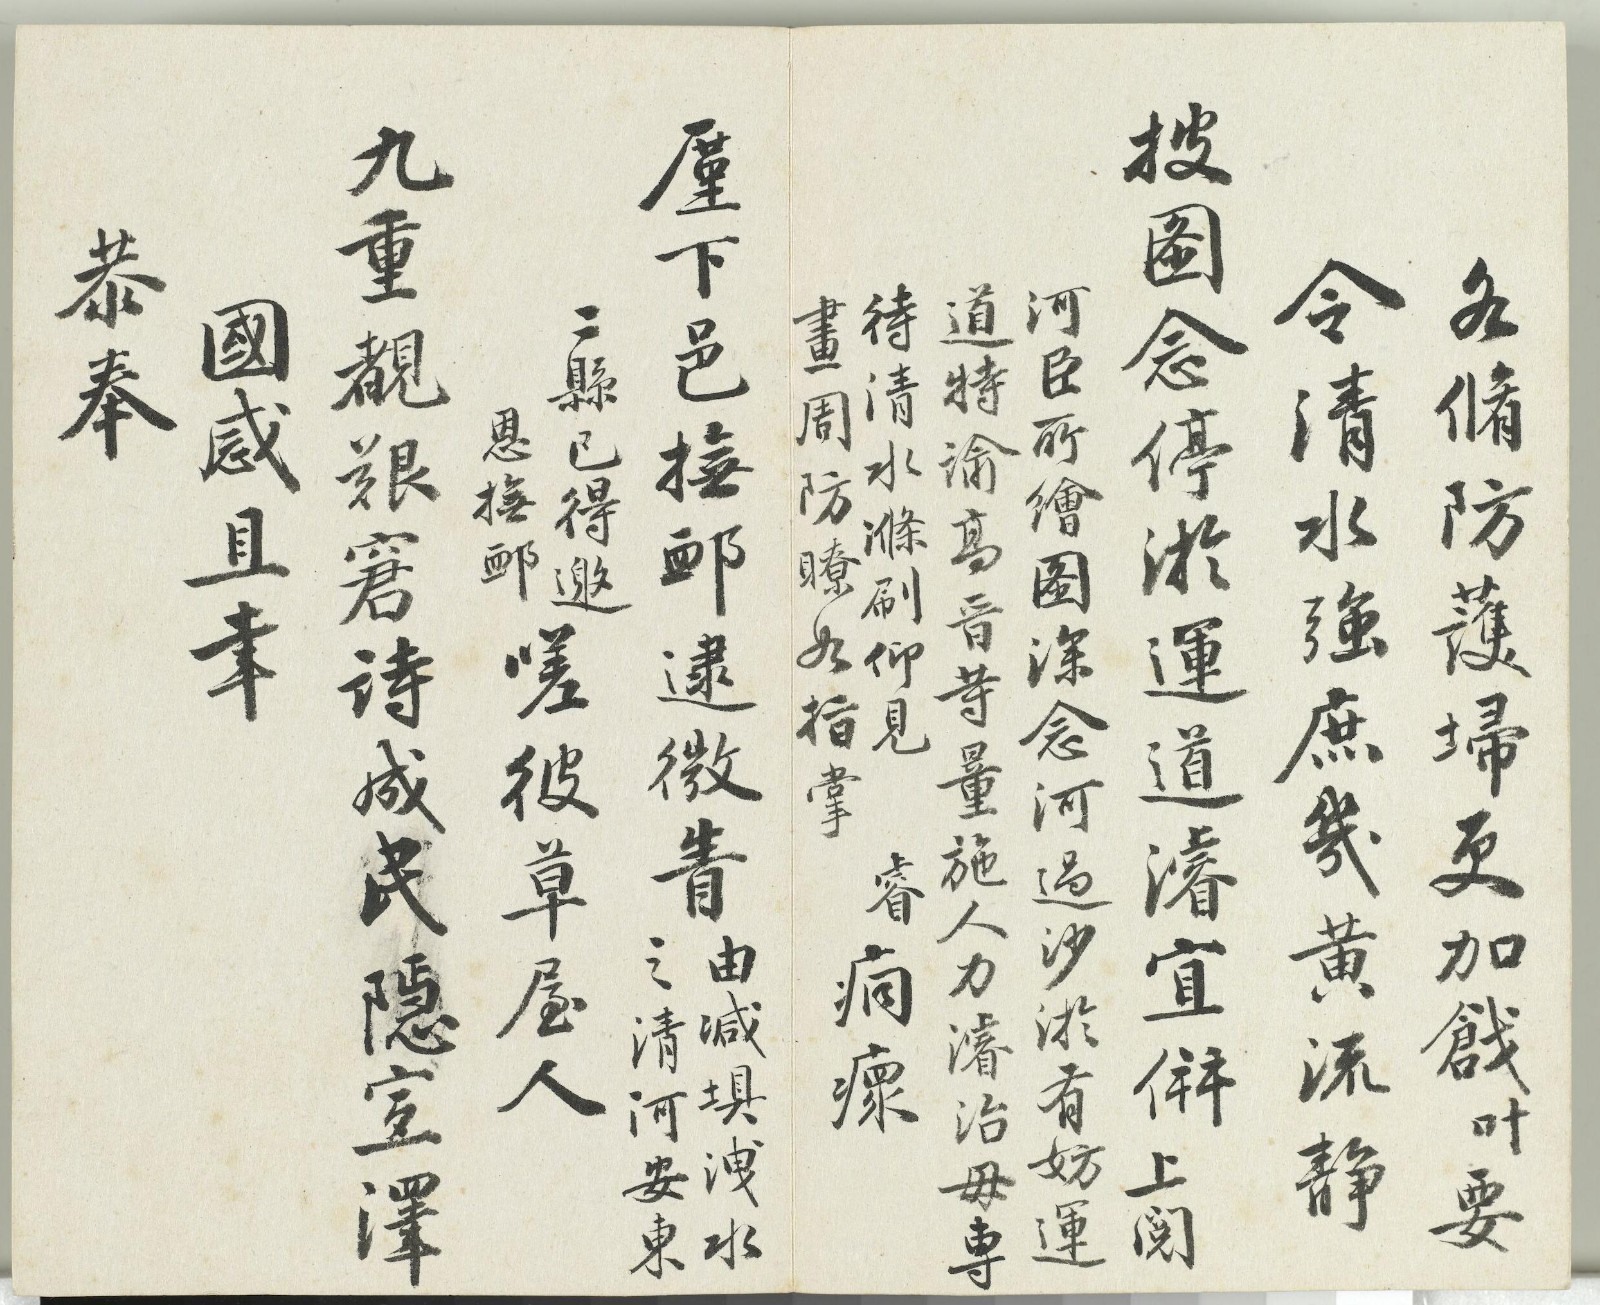 各脩防護埽更加戧叶要
令清水強庶幾黃流靜
披圖念停淤運道濬宜併上閱
河臣所繪圖深念河過沙淤有妨運
道特諭高晉等量施人力濬治毋專
待清水滌刷仰見睿
畫周防瞭如指掌
痌瘝
廑下邑撫卹逮微眚由減壩洩水
之清河安東
二縣已得邀
恩撫卹
嗟彼草屋人
九重覩艱窘詩成民隱宣澤
國感且幸
恭奉